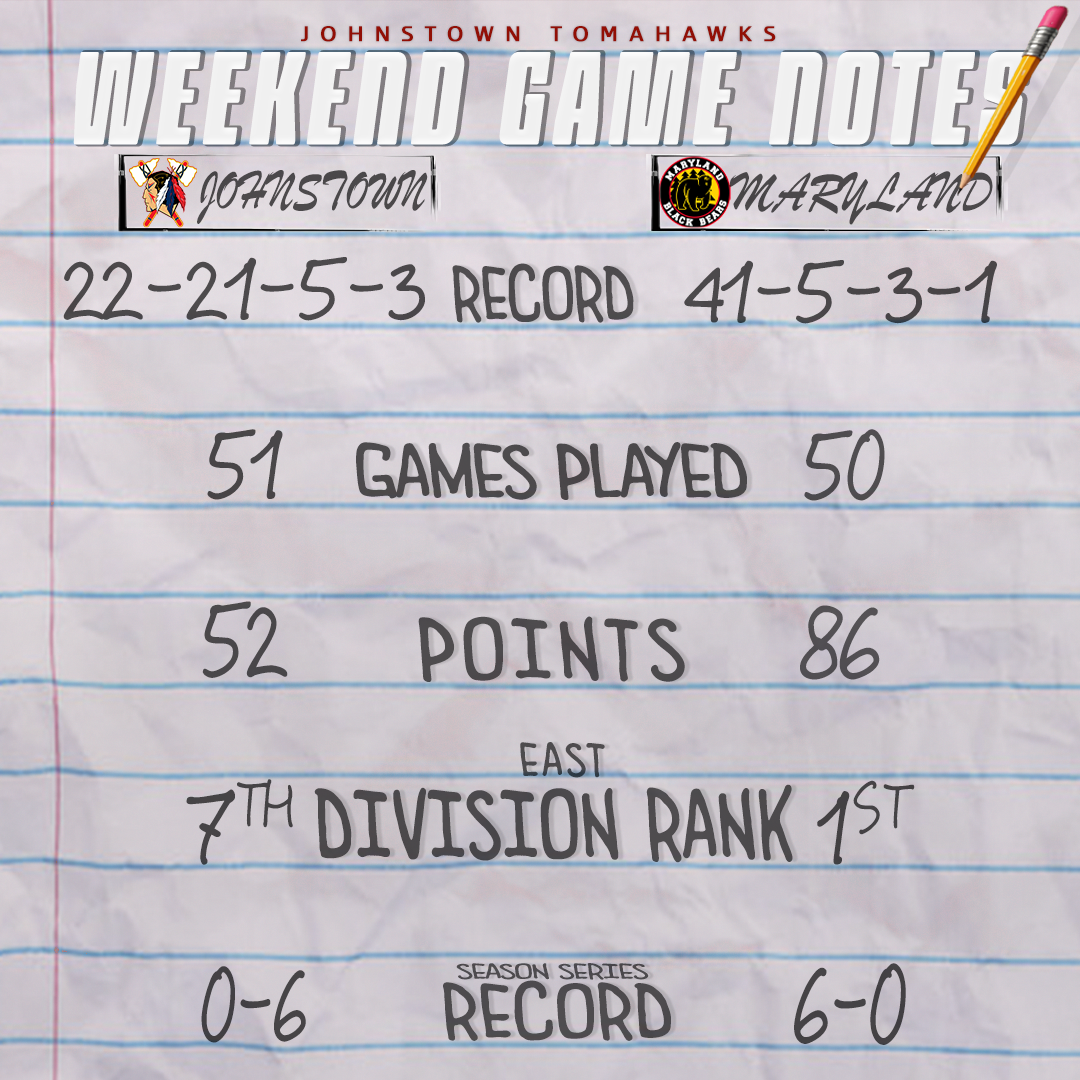 JOHNSTOWN TOMAHAWKS
WEEKEND GAME NOTES
JOHNSTOWN MARYLAND BLACK BEARS MARYLAND
22-21-5-3 RECORD 41-5-3-1
51 GAMES PLAYED 50
52 POINTS 86
EAST
7TH DIVISION RANK 1ST
SEASON SERIES
0-6 RECORD 6-0